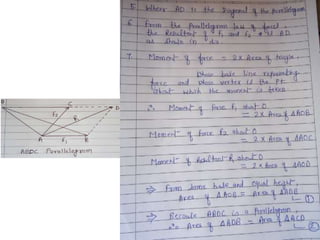 5. Where AD is the Diagonal of the Parallelogram
6. From the Parallelogram law of force,
the Resultant of F1 and F2 is AD
as shown in
7. Moment of force = 2 x Area of triangle,
whose base line representing
force and whose vertex is the Pt.
about which the moment is taken
∴ Moment of force F1 about O
= 2 x Area of ΔAOB
Moment of force F2 about O
= 2 x Area of ΔAOC
Moment of Resultant R about O
= 2 x Area of ΔAOD
⇒ From same base and equal height,
Area of ΔAOB = Area of ΔADB
①
⇒ Because ABDC is a Parallelogram,
∴ Area of ΔADB = Area of ΔACD
②
D
F2
R
A
F1
B
ABDC Parallelogram